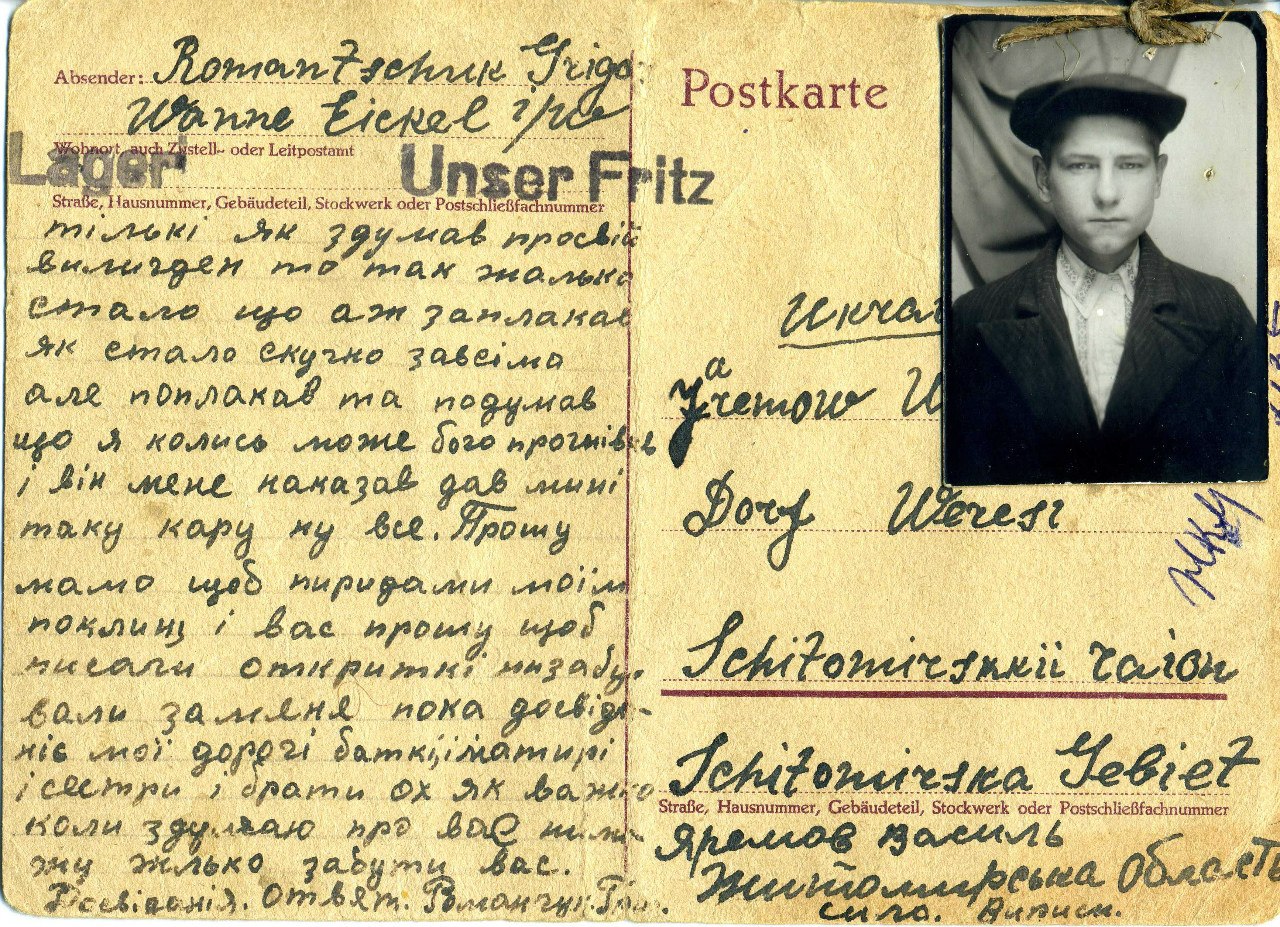 Absender: Romantschuk Grigo
Wanne Eickel
Wohnort, auch Zustell- oder Leitpostamt
Lager Unser Fritz
Straße, Hausnummer, Gebäudeteil, Stockwerk oder Postschließfachnummer
тількі як здумав про свій
виликден то так жалько
стало що аж заплакав
як стало скучно завсіма
але поплакав та подумав
що я колись може бого прогнівив
і він мене наказав дав мині
таку кару ну все. Прошу
мамо щоб пиридами моїм
поклинц і вас прошу щоб
писали откриткі низабу-
вали заменя пока досвідо-
ніє мої дорогі баткі і матирі
і сестри і брати ох як важко
коли здумаю про вас
жу жлько забути вас.
Досвіданія. Отвят. Романчук Григ.
Postkarte
Jaremow W
Dorf Weresi
Schitomirskii raion
Schitomirska Gebiet
Straße, Hausnummer, Gebäudeteil, Stockwerk oder Postschließfachnummer
Яремов Василь
Житомирська Область
сило.